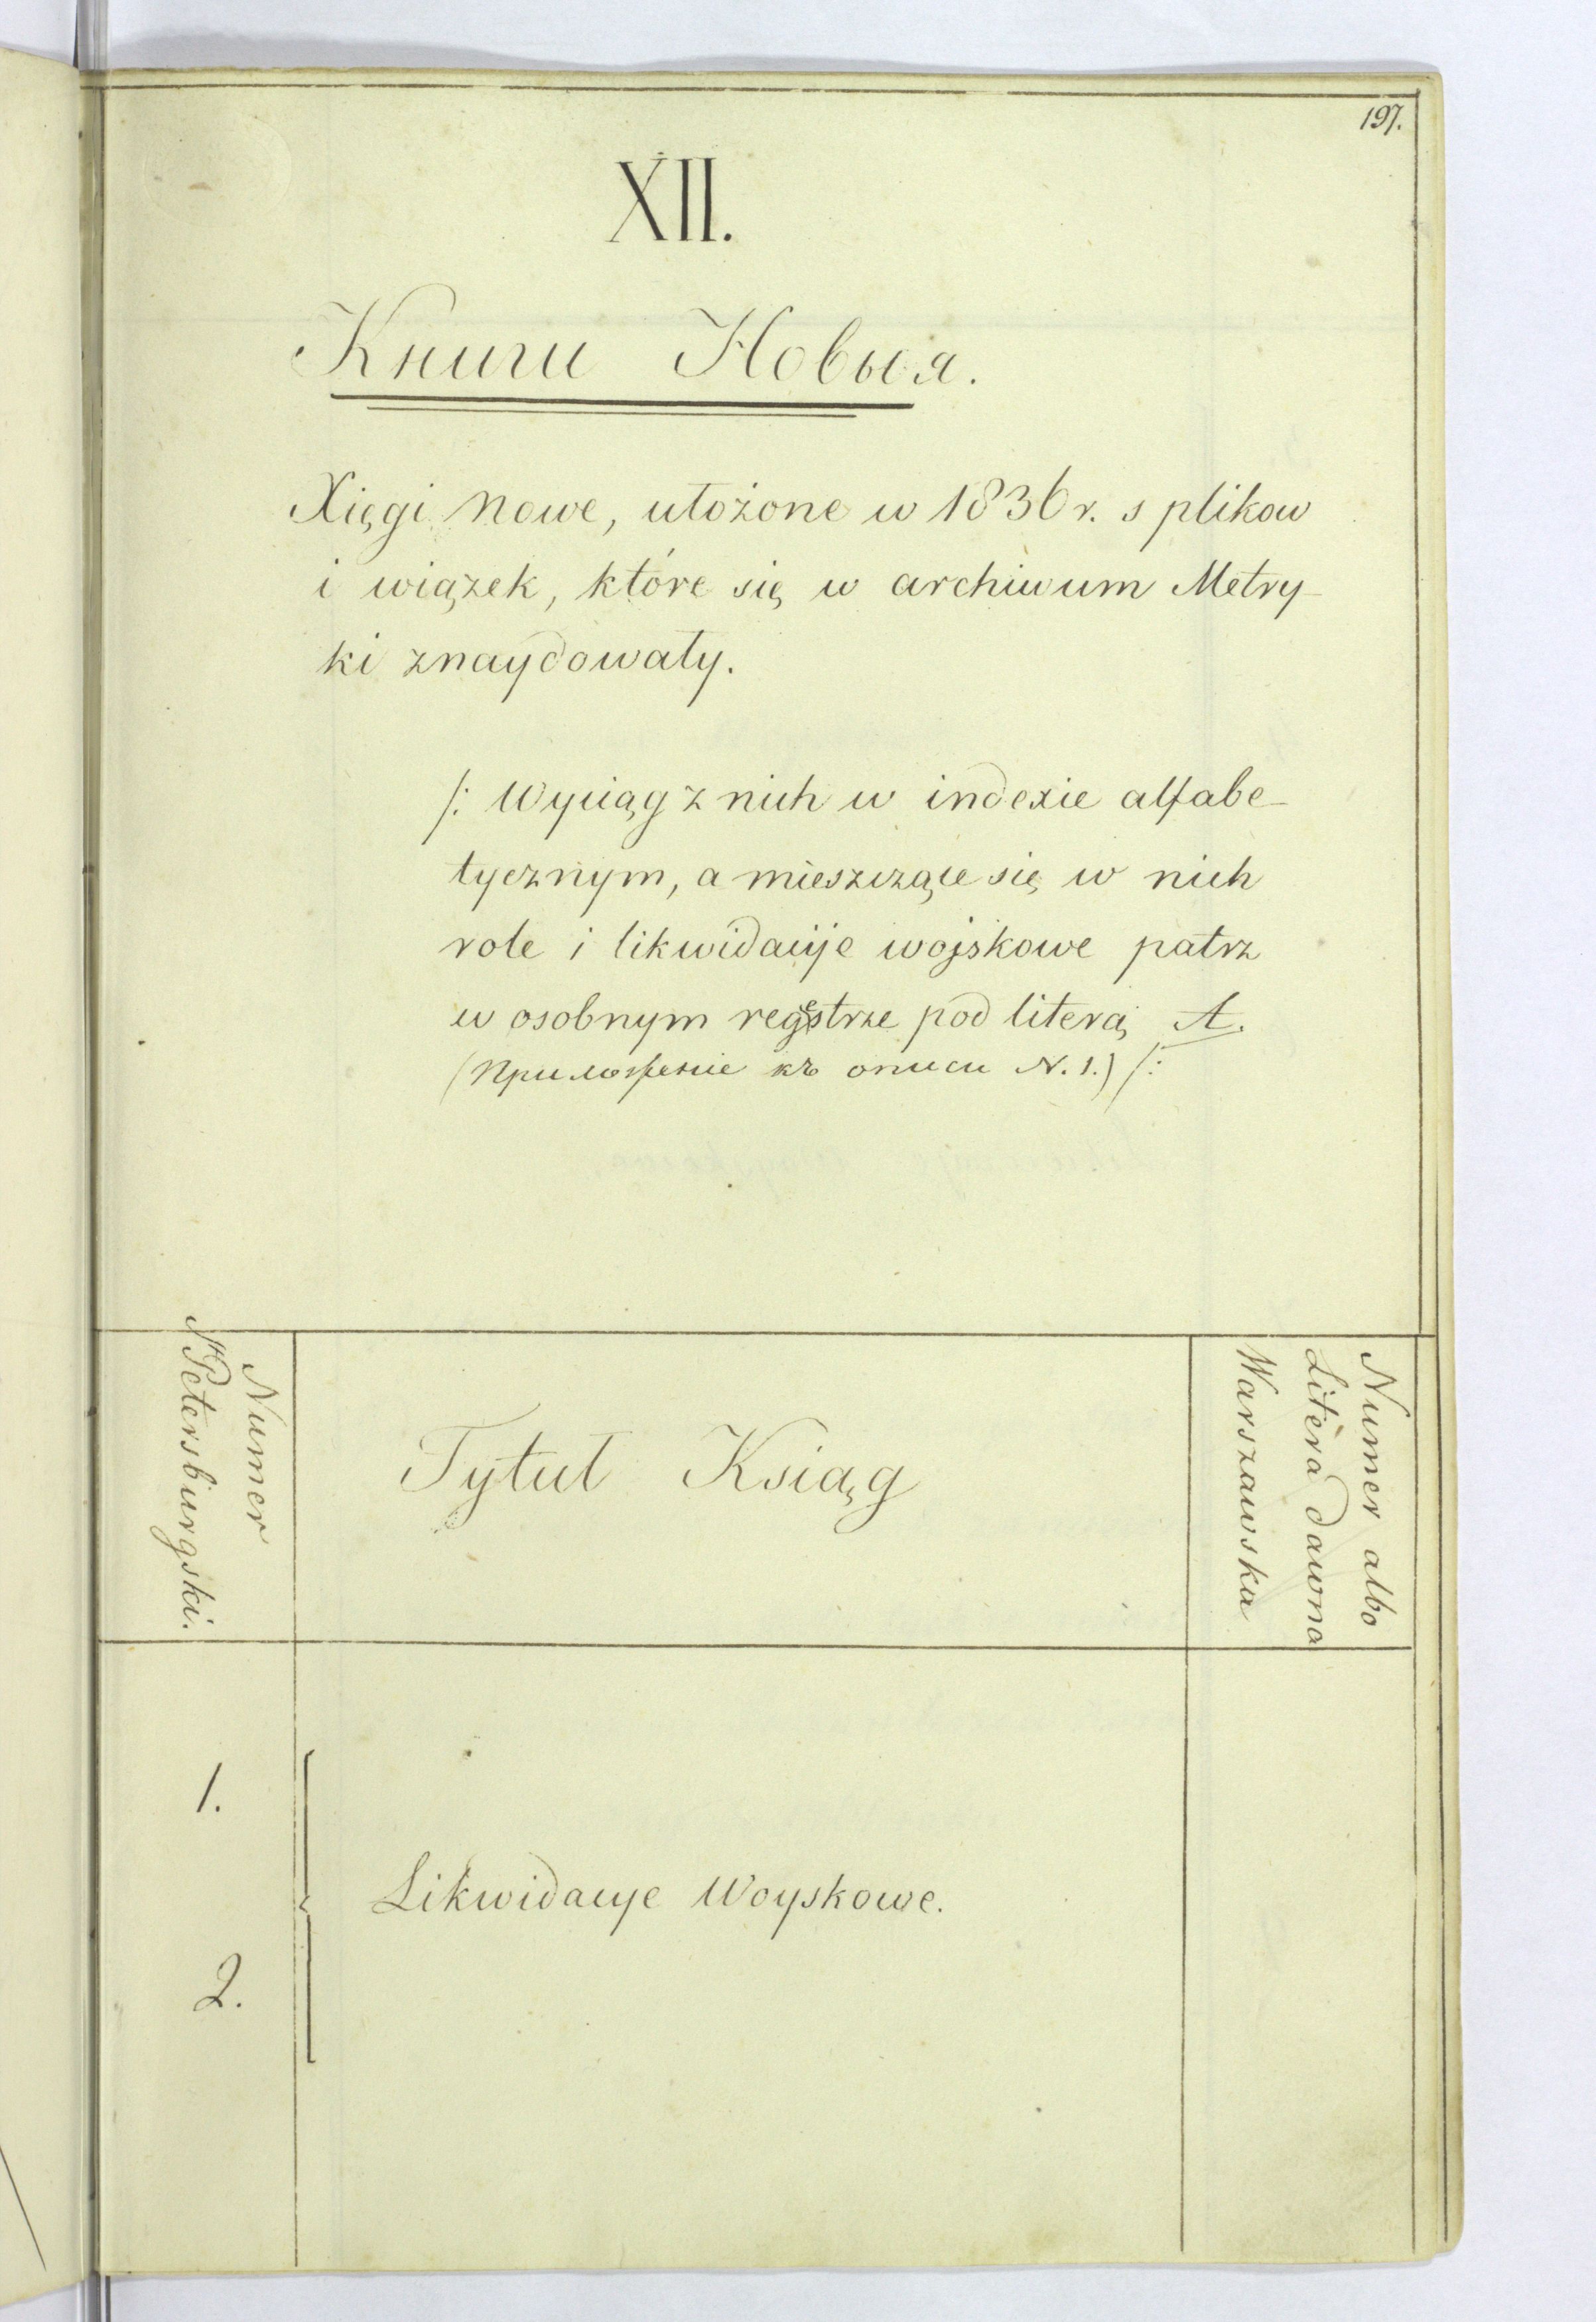 197.
XII.
Книги Новыя.
Xięgi Nowe, ułożone w 1836 r. s plikow
i wiązek, które się w archiwum Metry-
ki znaydowały.
/: Wyciąg z nich w indexie alfabe-
tycznym, a mieszczące się w nich
role i likwidacije wojskowe patrz
w osobnym regestrze pod literą A.
(Приложенie къ описи N. 1.) /:
Numer
St Petersburgski.
Tytuł Ksiąg
Numer albo
Litera dawna
Warszawska
1.
Likwidacye Woyskowe.
2.